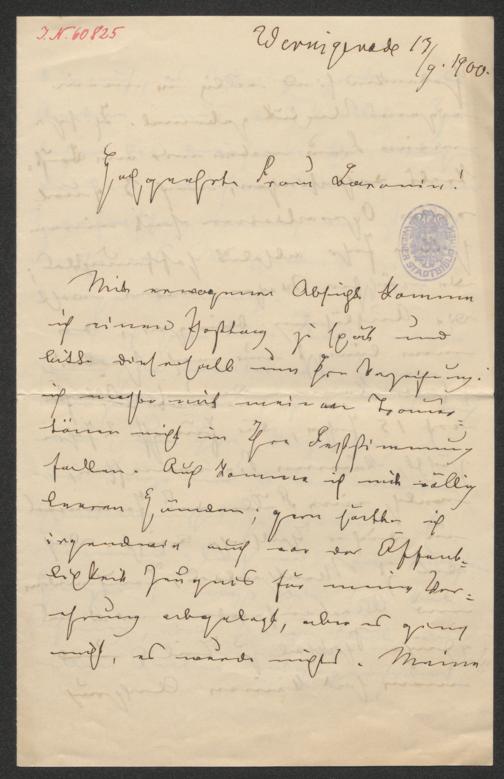 J.N. 60825
Wernigerode 13/9. 1900.
Hochgeehrte Frau Baronin!
WIENER STADTBIBLIOTHEK
Mit erwogener Absicht komme
ich einen Posttag zu spät und
bitte dieserhalb um Ihre Verzeihung:
ich wollte mit meinen Trauer-
tönen nicht in Ihre Feststimmung
fallen. Auch komme ich mit völlig
leeren Händen; gern hätte ich
irgendwie auch vor der Öffent-
lichkeit Zeugnis für meine Ver-
ehrung abgelegt, aber es ging
nicht, es wurde nichts. Meine